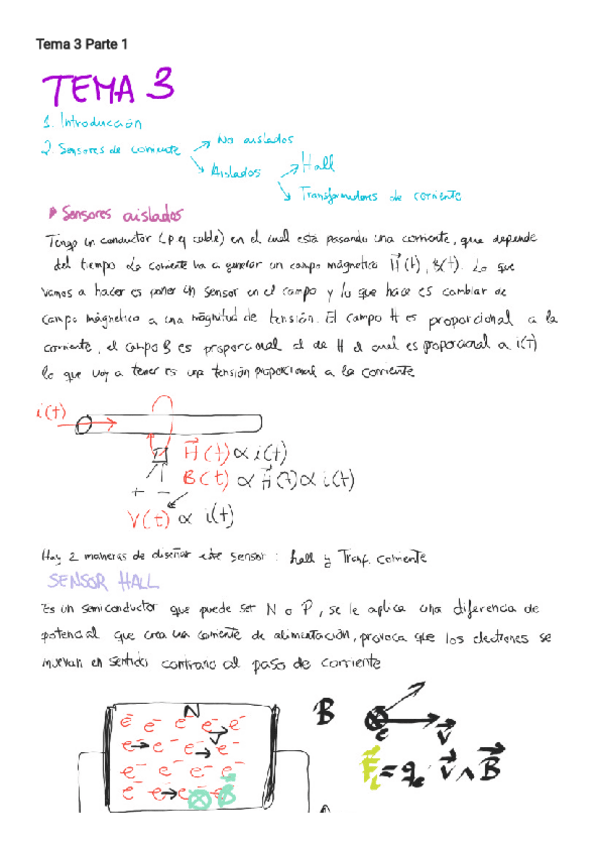 Tema 3 Parte 1
TEMA 3
1. Introducción
2. Sensores de corriente → No aislados
→ Aislados → Hall
→ Transformadores de corriente
Sensores aislados
Tengo un conductor (p.ej cable) en el cual está pasando una corriente, que depende
del tiempo. La corriente va a generar un campo mágnetico H(t), B(t). Lo que
vamos a hacer es poner un sensor en el campo y lo que hace es cambiar de
campo mágnetico a una mágnitud de tensión. El campo H es proporcional a la
corriente, el campo B es proporcional al de H el cual es proporcional a i(t)
lo que voy a tener es una tensión proporcional a la corriente
i(t)
H(t) ∝ i(t)
B(t) ∝ H(t) ∝ i(t)
+ −
V(t) ∝ i(t)
Hay 2 maneras de diseñar este sensor: hall y Transf. corriente
SENSOR HALL
Es un semiconductor que puede ser N o P, se le aplica una diferencia de
potencial que crea una corriente de alimentación, provoca que los electrones se
muevan en sentido contrario al paso de corriente
N B
e⁻ e⁻ e⁻ e⁻ e⁻
e⁻ e⁻ e⁻ V e⁻ e V
e⁻ e⁻ e⁻ e⁻
e⁻ e⁻ e⁻ B
F = q V ∧ B